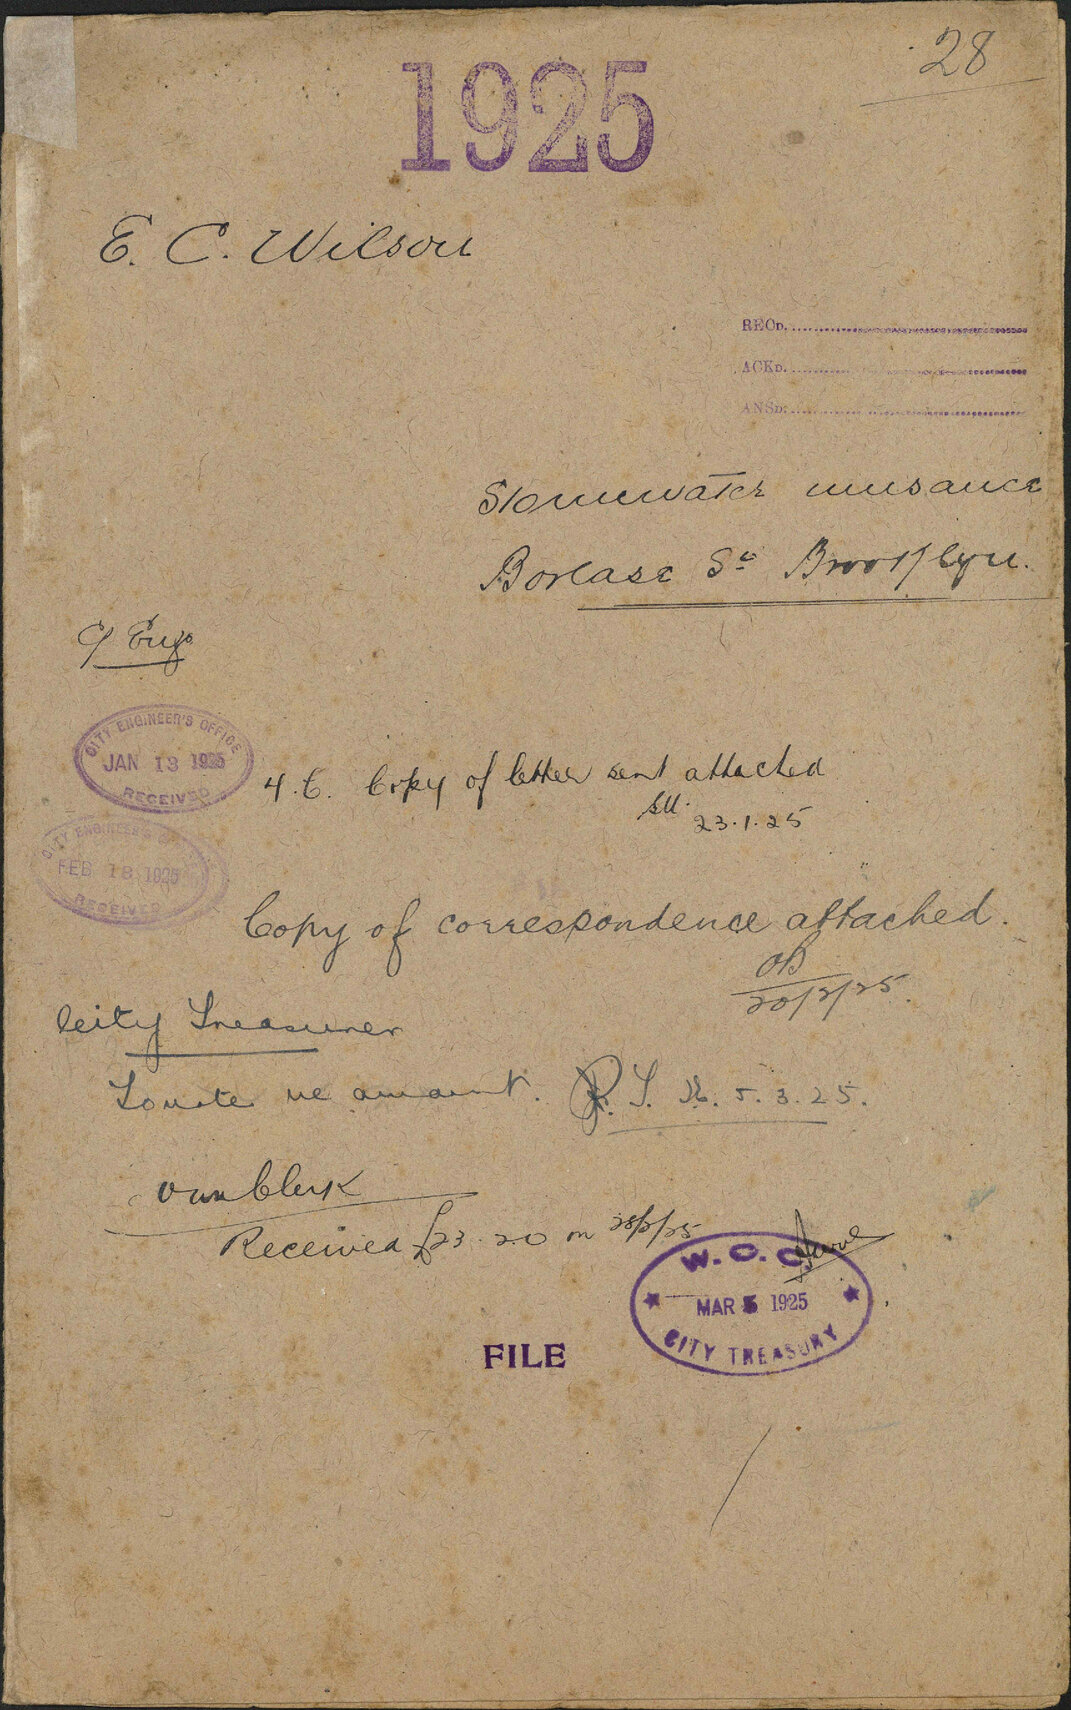 28
1925
E. C. Wilson
RECD.
ACKD.
ANSD.
Stormwater nuisance
Borlase St Brooklyn.
C/ Engr
CITY ENGINEER'S OFFICE
JAN 13 1925
RECEIVED
Copy of letter sent attached
23.1.25
CITY ENGINEER'S OFFICE
FEB 18 1925
RECEIVED
Copy of correspondence attached.
OB
20/2/25.
City Treasurer
To note re amount. 5.3.25.
Clerk
Received £23.2.0 on 28/2/25
W.C.C.
MAR 5 1925
CITY TREASURY
FILE